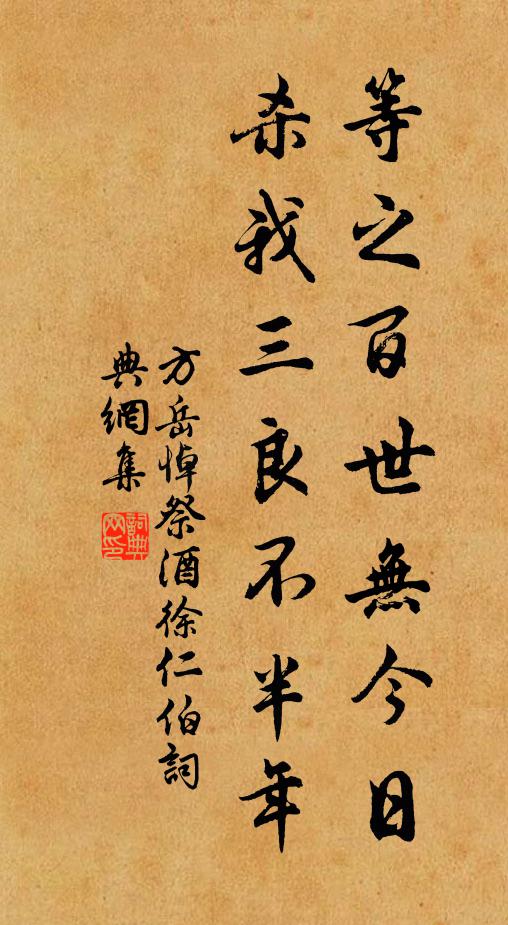 等之百世無今日
杀我三良不半年
方岳悼祭酒徐仁伯詞
典網集
詞典網印